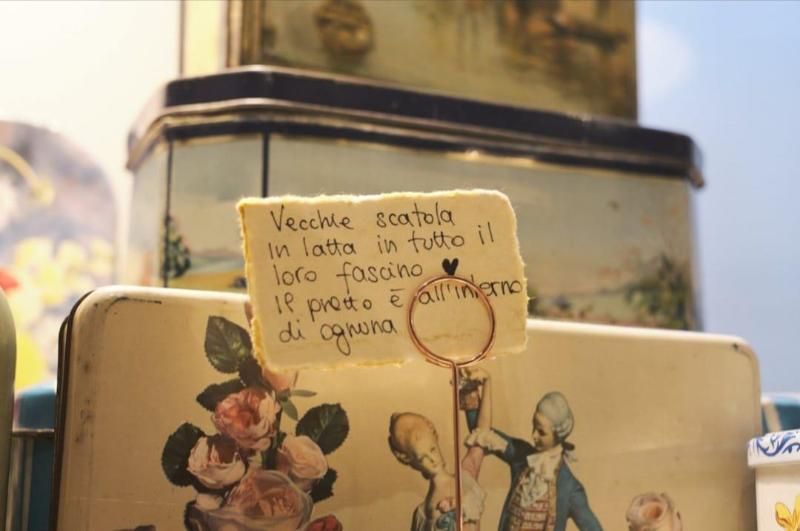 Vecchie scatola
in latta in tutto il
loro fascino ♥
Il pretto è all'interno
di ognuna